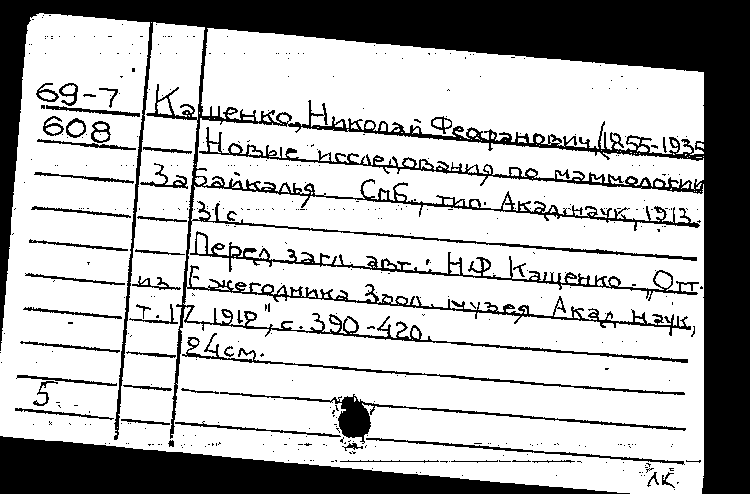 69-7 Кащенко, Николай Феофанович, (1855-1935
608 Новые исследования по маммологии
Забайкалья. Спб., тип. Акад. наук, 1913.
31 с.
Перед загл. авт.: Н.Ф. Кащенко. „Отт.
из Ежегодника Зоол. музея Акад. наук,
т. 17, 1912", с. 390-420.
24 см.
5
ЛК